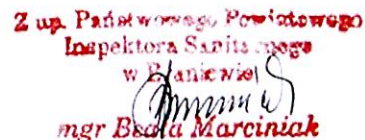 Z up. Państwowego Powiatowego
Inspektora Sanitarnego
w Braniewie
mgr Beata Marciniak